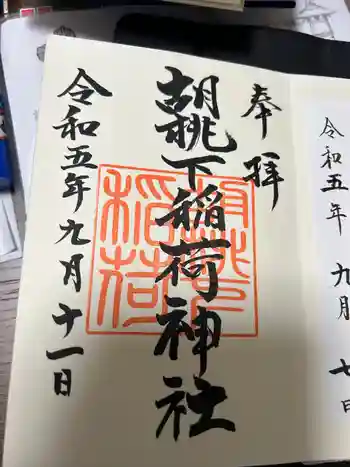 令和五年九月七日
奉拝
胡桃下稲荷神社
令和五年九月十一日
稲荷